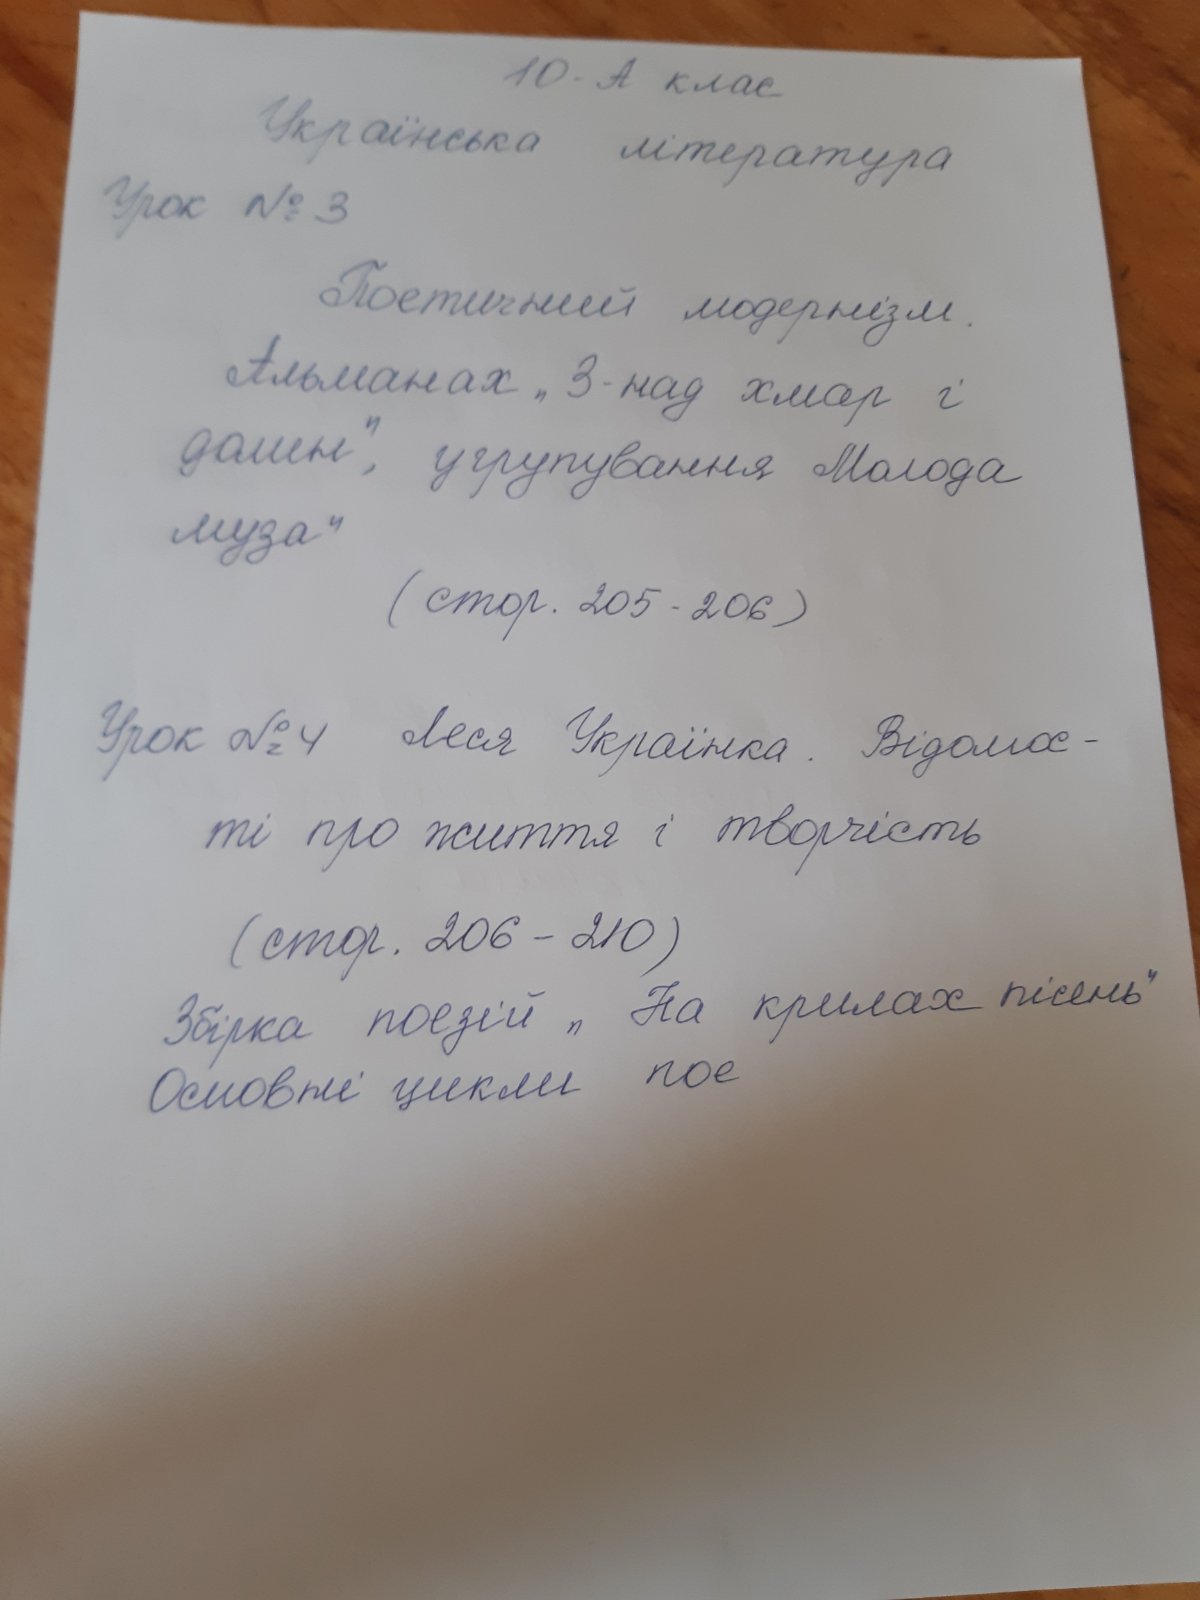 10-А клас
Українська література
Урок № 3
Поетичний модернізм.
Альманах „З-над хмар і
долин", угрупування Молода
муза"
(стор. 205-206)
Урок №4 Леся Українка. Відомос-
ті про життя і творчість
(стор. 206-210)
Збірка поезій „На крилах пісень"
Основні цикли пое